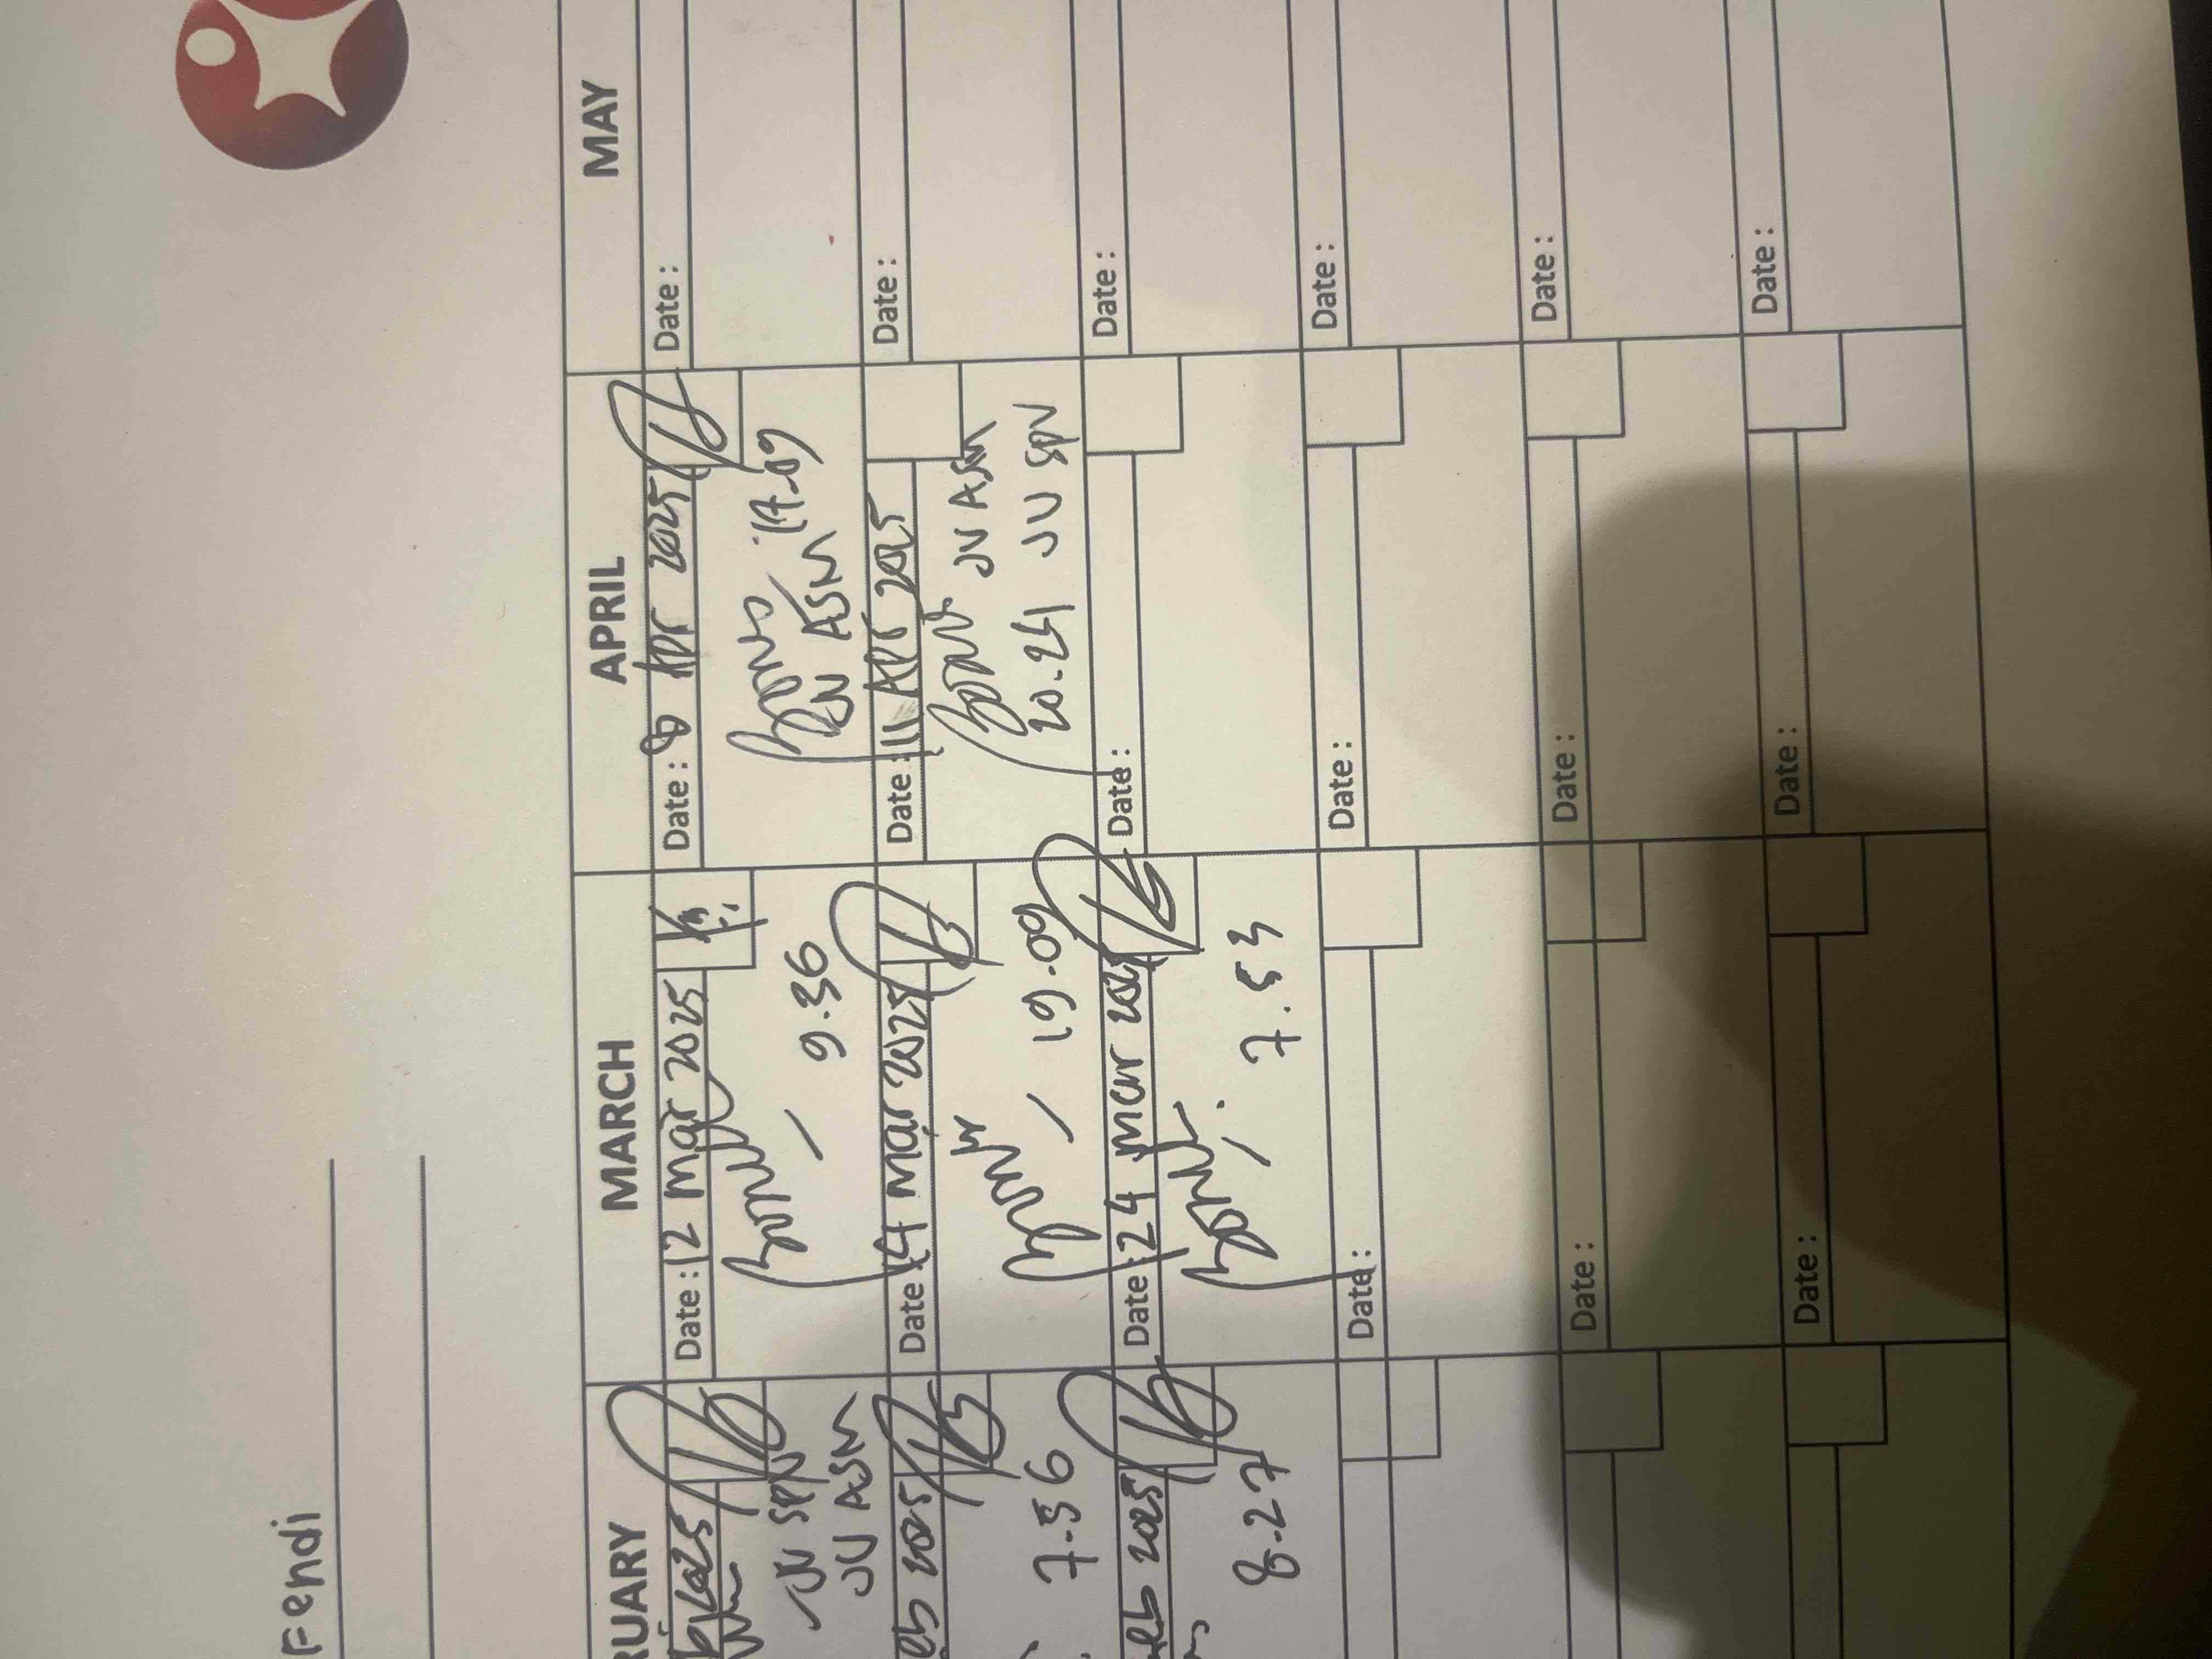 Fendi
RUARY
2025
JV SPV
JV ASM
Feb 2025
7.56
Feb 2025
8.27
MARCH
Date : 12 Mar 2025
9.36
Date : 14 Mar 2025
19.09
Date : 24 Mar 2025
7.53
Date :
Date :
Date :
APRIL
Date : 8 Apr 2025
19.09
JV ASM
Date : 11 Apr 2025
JV ASM
20.21 JV SPV
Date :
Date :
Date :
Date :
MAY
Date :
Date :
Date :
Date :
Date :
Date :